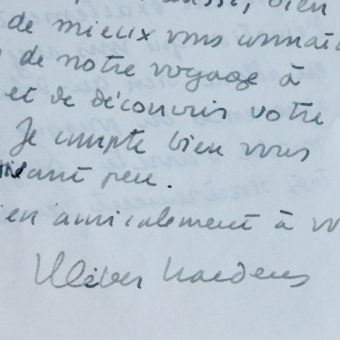 aussi, bien
de mieux vous connaî
de notre voyage à
et de découvrir votre
Je compte bien vous
avant peu.
ien amicalement à vo
Kléber Haedens